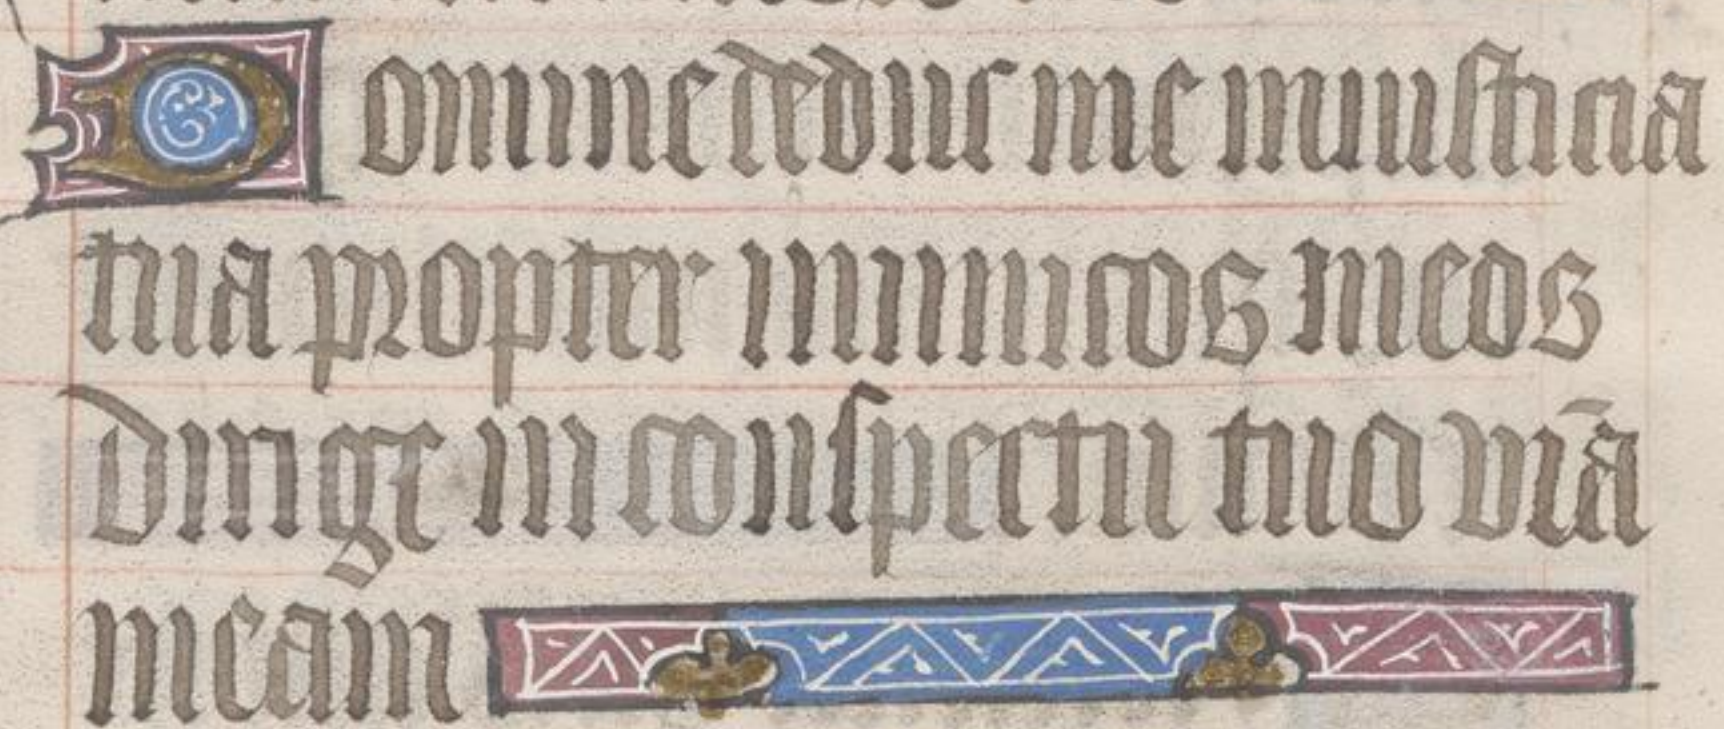 Domine deduc me in iusticia
tua propter inimicos meos
dirige in conspectu tuo viā
meam